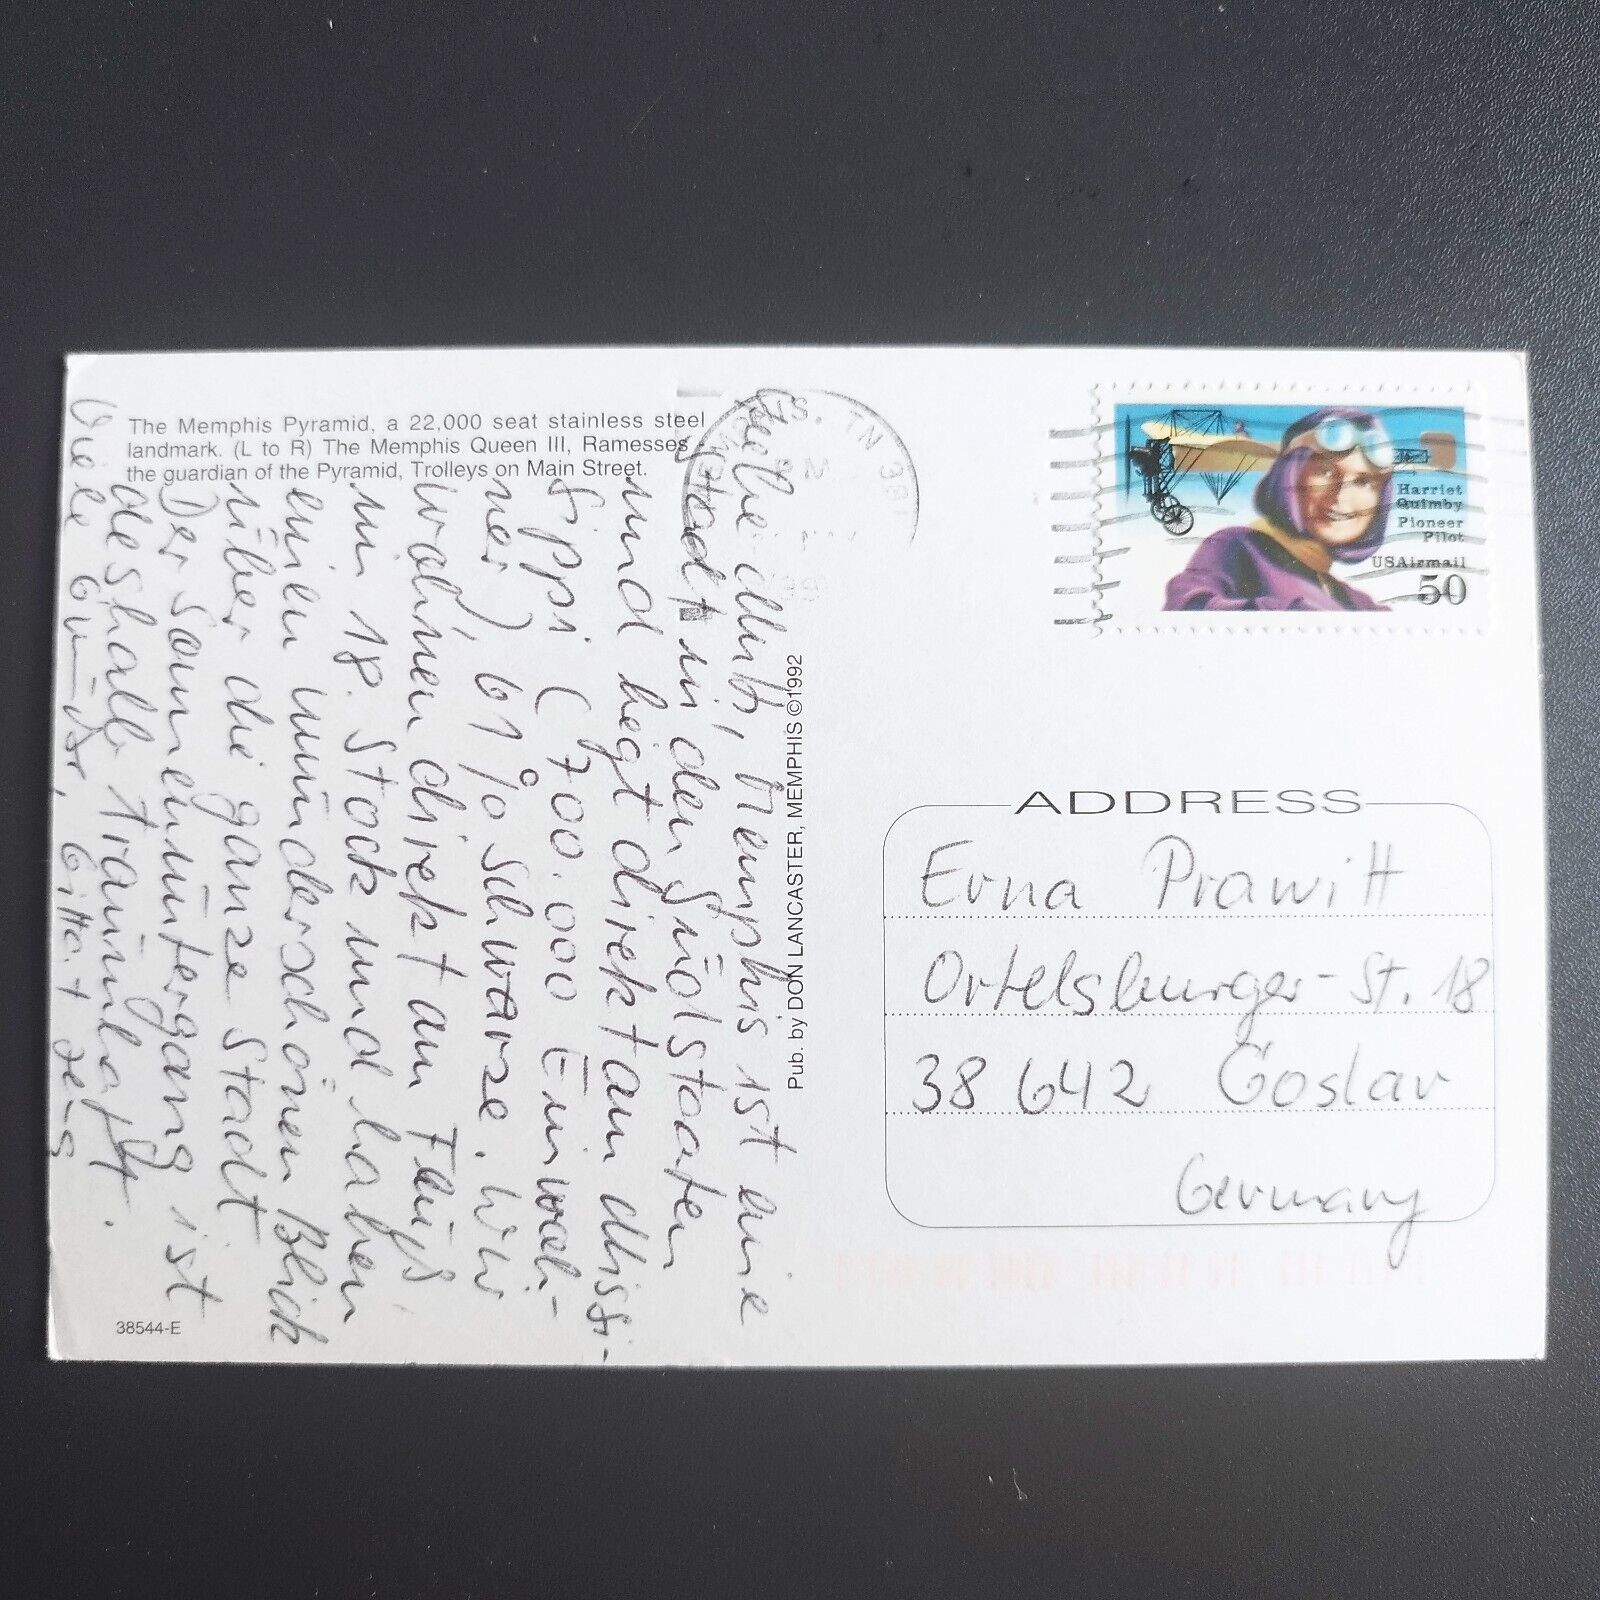 The Memphis Pyramid, a 22,000 seat stainless steel
landmark. (L to R) The Memphis Queen III, Ramesses
the guardian of the Pyramid, Trolleys on Main Street.
Memphis ist eine
Stadt in den Südstaaten
und liegt direkt am Missis-
sippi (700.000 Einwoh-
ner) 61% Schwarze. Wir
wohnen direkt am Fluß,
im 18. Stock und haben
einen wunderschönen Blick
über die ganze Stadt
Der Sonnenuntergang ist
deshalb traumhaft.
Viele
Pub. by DON LANCASTER, MEMPHIS ©1992
38544-E
TN
Harriet
Quimby
Pioneer
Pilot
USAirmail
50
ADDRESS
Erna Prawitt
Ortelsburger-St. 18
38 642 Goslar
Germany